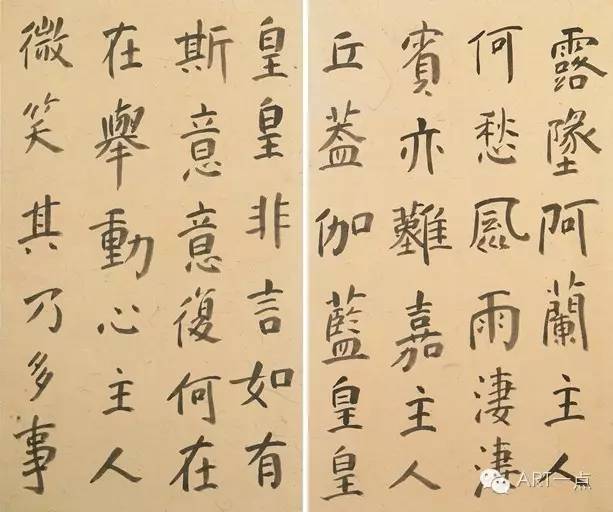 露墜阿蘭主人
何愁風雨淒淒
賓亦難嘉主人
丘蓋伽藍皇皇
皇皇非言如有
斯意意復何在
在舉動心主人
微笑其乃多事
ART一点